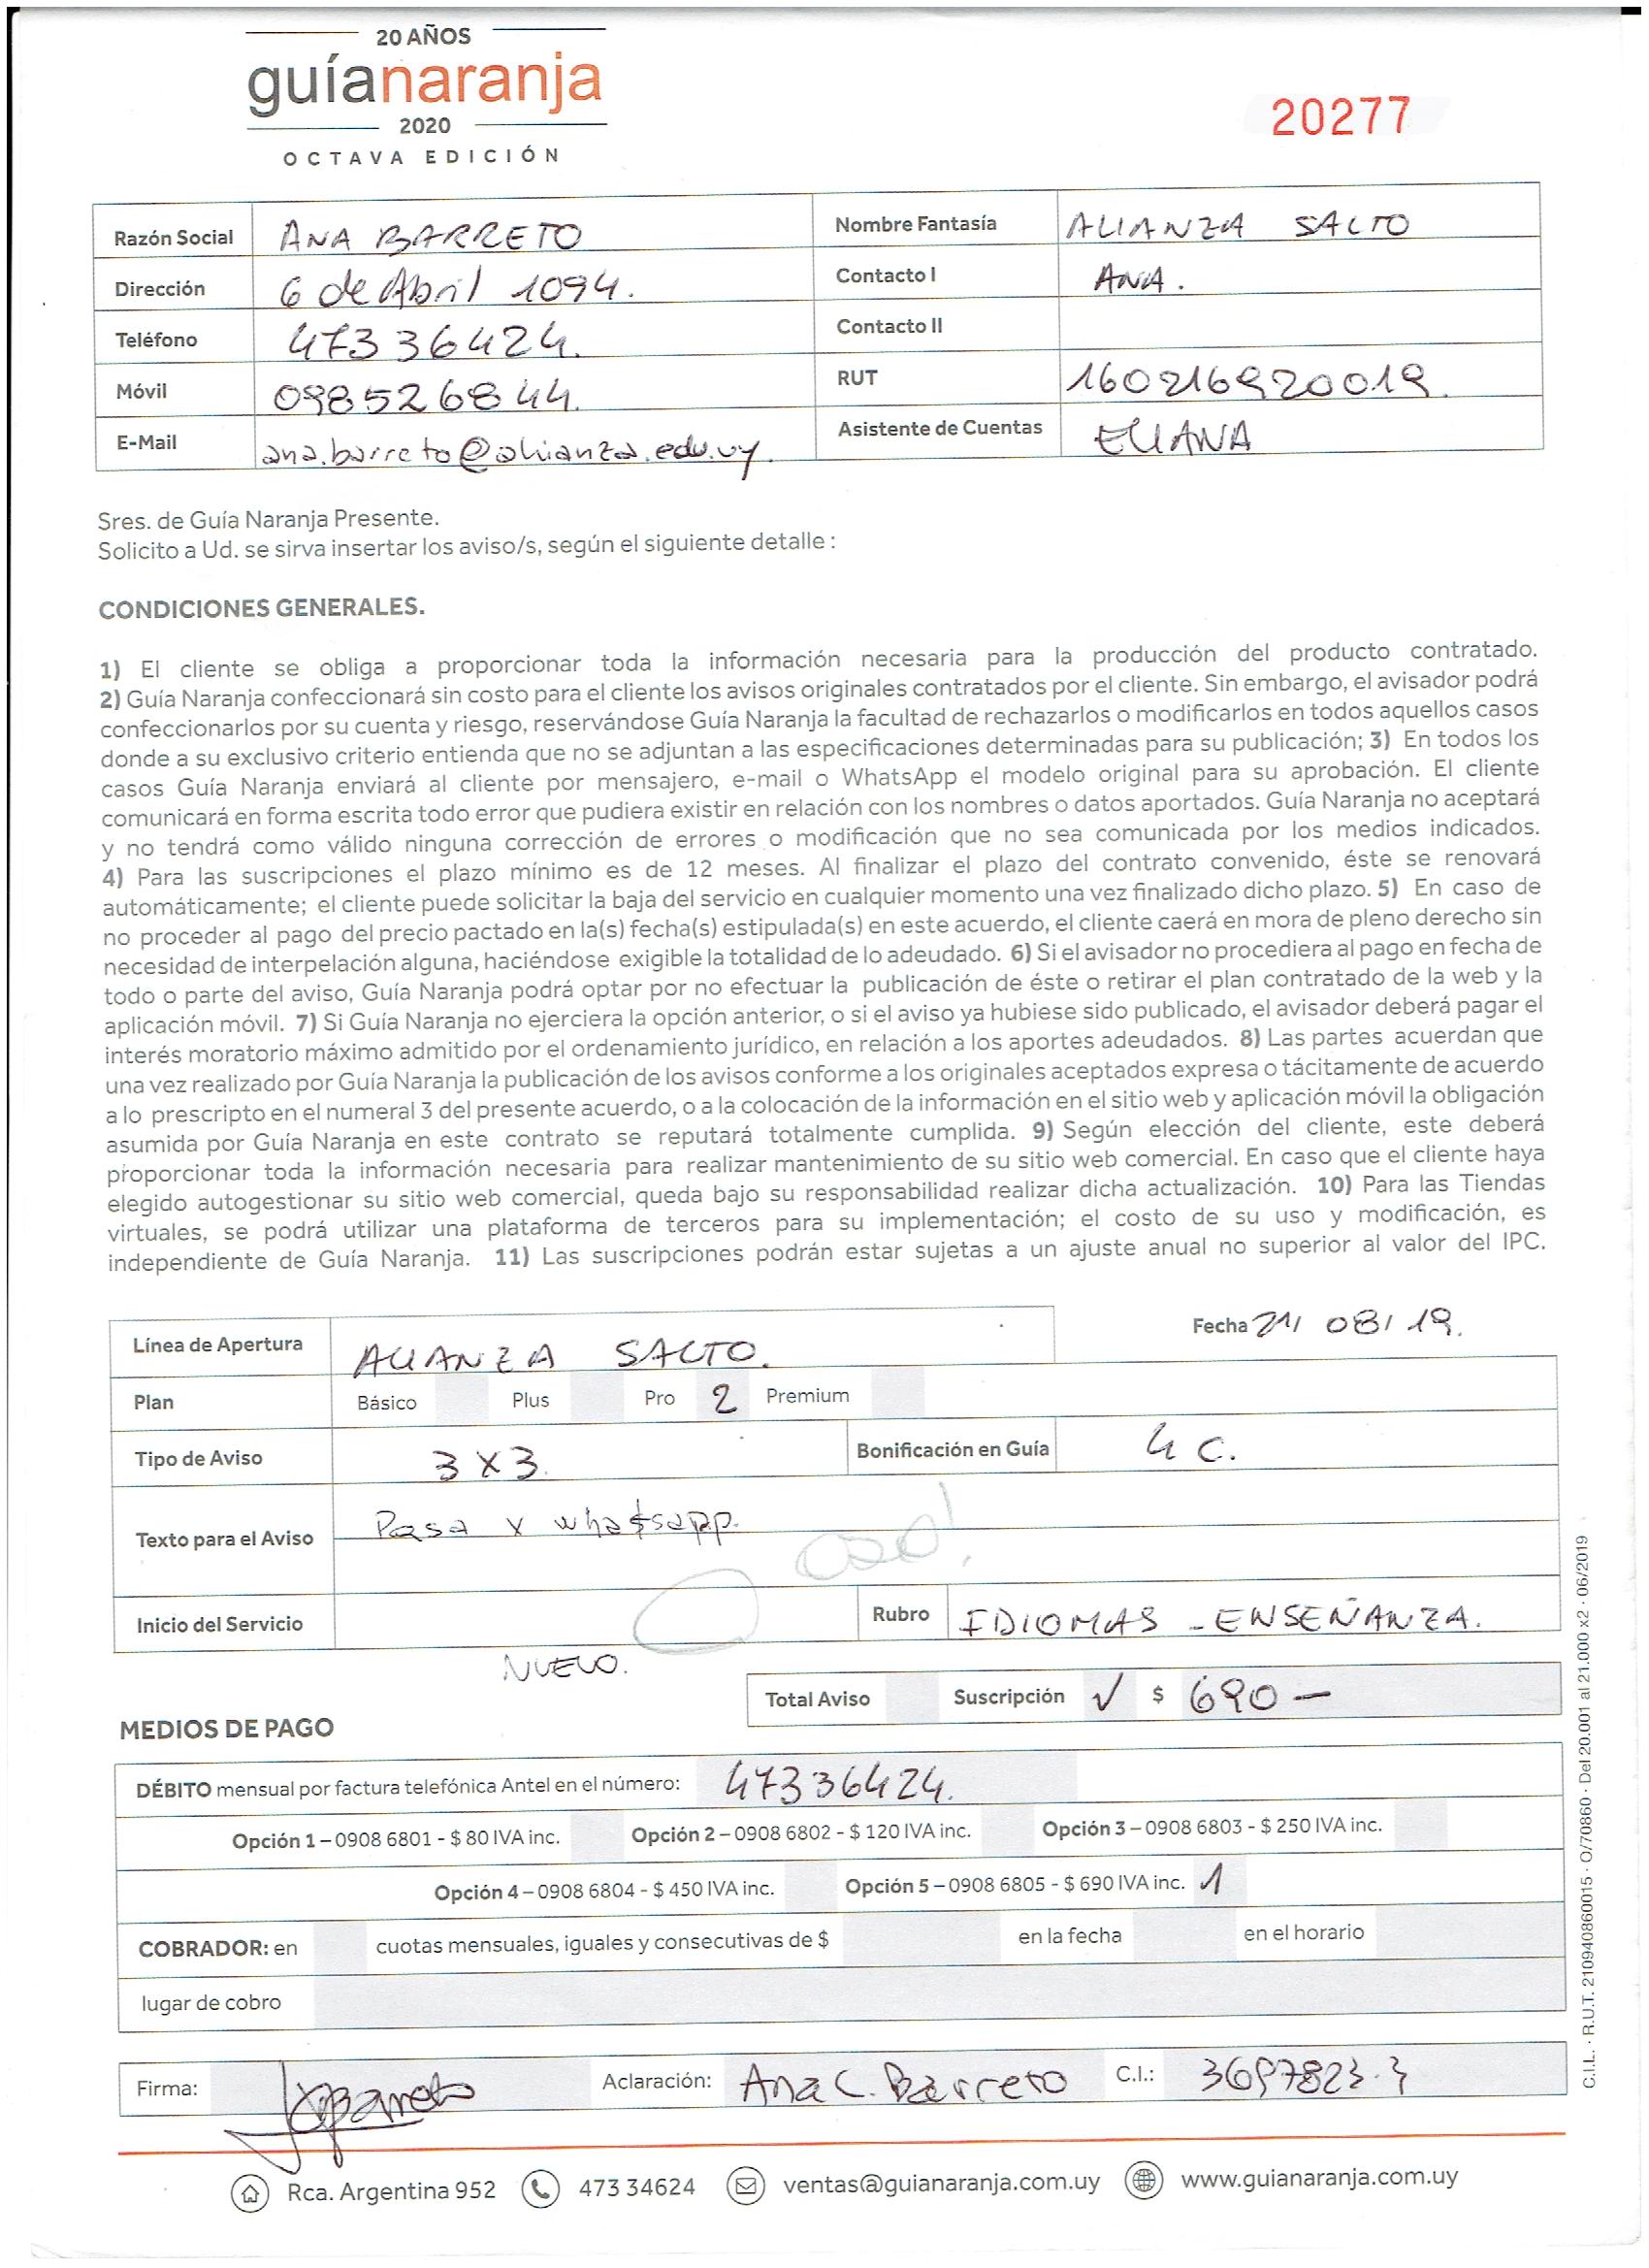 20 AÑOS
guíanaranja
2020
OCTAVA EDICIÓN
20277
Razón Social ANA BARRETO Nombre Fantasía ALIANZA SALTO
Dirección 6 de Abril 1094. Contacto I ANA.
Teléfono 47336424. Contacto II
Móvil 098526844. RUT 160216920019.
E-Mail ana.barreto@alianza.edu.uy. Asistente de Cuentas ELIANA
Sres. de Guía Naranja Presente.
Solicito a Ud. se sirva insertar los aviso/s, según el siguiente detalle :
CONDICIONES GENERALES.
1) El cliente se obliga a proporcionar toda la información necesaria para la producción del producto contratado.
2) Guía Naranja confeccionará sin costo para el cliente los avisos originales contratados por el cliente. Sin embargo, el avisador podrá
confeccionarlos por su cuenta y riesgo, reservándose Guía Naranja la facultad de rechazarlos o modificarlos en todos aquellos casos
donde a su exclusivo criterio entienda que no se adjuntan a las especificaciones determinadas para su publicación; 3) En todos los
casos Guía Naranja enviará al cliente por mensajero, e-mail o WhatsApp el modelo original para su aprobación. El cliente
comunicará en forma escrita todo error que pudiera existir en relación con los nombres o datos aportados. Guía Naranja no aceptará
y no tendrá como válido ninguna corrección de errores o modificación que no sea comunicada por los medios indicados.
4) Para las suscripciones el plazo mínimo es de 12 meses. Al finalizar el plazo del contrato convenido, éste se renovará
automáticamente; el cliente puede solicitar la baja del servicio en cualquier momento una vez finalizado dicho plazo. 5) En caso de
no proceder al pago del precio pactado en la(s) fecha(s) estipulada(s) en este acuerdo, el cliente caerá en mora de pleno derecho sin
necesidad de interpelación alguna, haciéndose exigible la totalidad de lo adeudado. 6) Si el avisador no procediera al pago en fecha de
todo o parte del aviso, Guía Naranja podrá optar por no efectuar la publicación de éste o retirar el plan contratado de la web y la
aplicación móvil. 7) Si Guía Naranja no ejerciera la opción anterior, o si el aviso ya hubiese sido publicado, el avisador deberá pagar el
interés moratorio máximo admitido por el ordenamiento jurídico, en relación a los aportes adeudados. 8) Las partes acuerdan que
una vez realizado por Guía Naranja la publicación de los avisos conforme a los originales aceptados expresa o tácitamente de acuerdo
a lo prescripto en el numeral 3 del presente acuerdo, o a la colocación de la información en el sitio web y aplicación móvil la obligación
asumida por Guía Naranja en este contrato se reputará totalmente cumplida. 9) Según elección del cliente, este deberá
proporcionar toda la información necesaria para realizar mantenimiento de su sitio web comercial. En caso que el cliente haya
elegido autogestionar su sitio web comercial, queda bajo su responsabilidad realizar dicha actualización. 10) Para las Tiendas
virtuales, se podrá utilizar una plataforma de terceros para su implementación; el costo de su uso y modificación, es
independiente de Guía Naranja. 11) Las suscripciones podrán estar sujetas a un ajuste anual no superior al valor del IPC.
Línea de Apertura ALIANZA SALTO. Fecha 21/ 08/ 19.
Plan Básico Plus Pro 2 Premium
Tipo de Aviso 3 x 3. Bonificación en Guía 4 C.
Texto para el Aviso Pasa x whatsapp.
Inicio del Servicio Rubro IDIOMAS - ENSEÑANZA.
NUEVO.
Total Aviso Suscripción ✓ $ 690 —
MEDIOS DE PAGO
DÉBITO mensual por factura telefónica Antel en el número: 47336424.
Opción 1 – 0908 6801 - $ 80 IVA inc. Opción 2 – 0908 6802 - $ 120 IVA inc. Opción 3 – 0908 6803 - $ 250 IVA inc.
Opción 4 – 0908 6804 - $ 450 IVA inc. Opción 5 – 0908 6805 - $ 690 IVA inc. 1
COBRADOR: en cuotas mensuales, iguales y consecutivas de $ en la fecha en el horario
lugar de cobro
Firma: Aclaración: Ana C. Barreto C.I.: 3697823-3
Rca. Argentina 952 473 34624 ventas@guianaranja.com.uy www.guianaranja.com.uy
C.I.L. · R.U.T. 210940860015 · O/70860 · Del 20.001 al 21.000 x2 · 06/2019